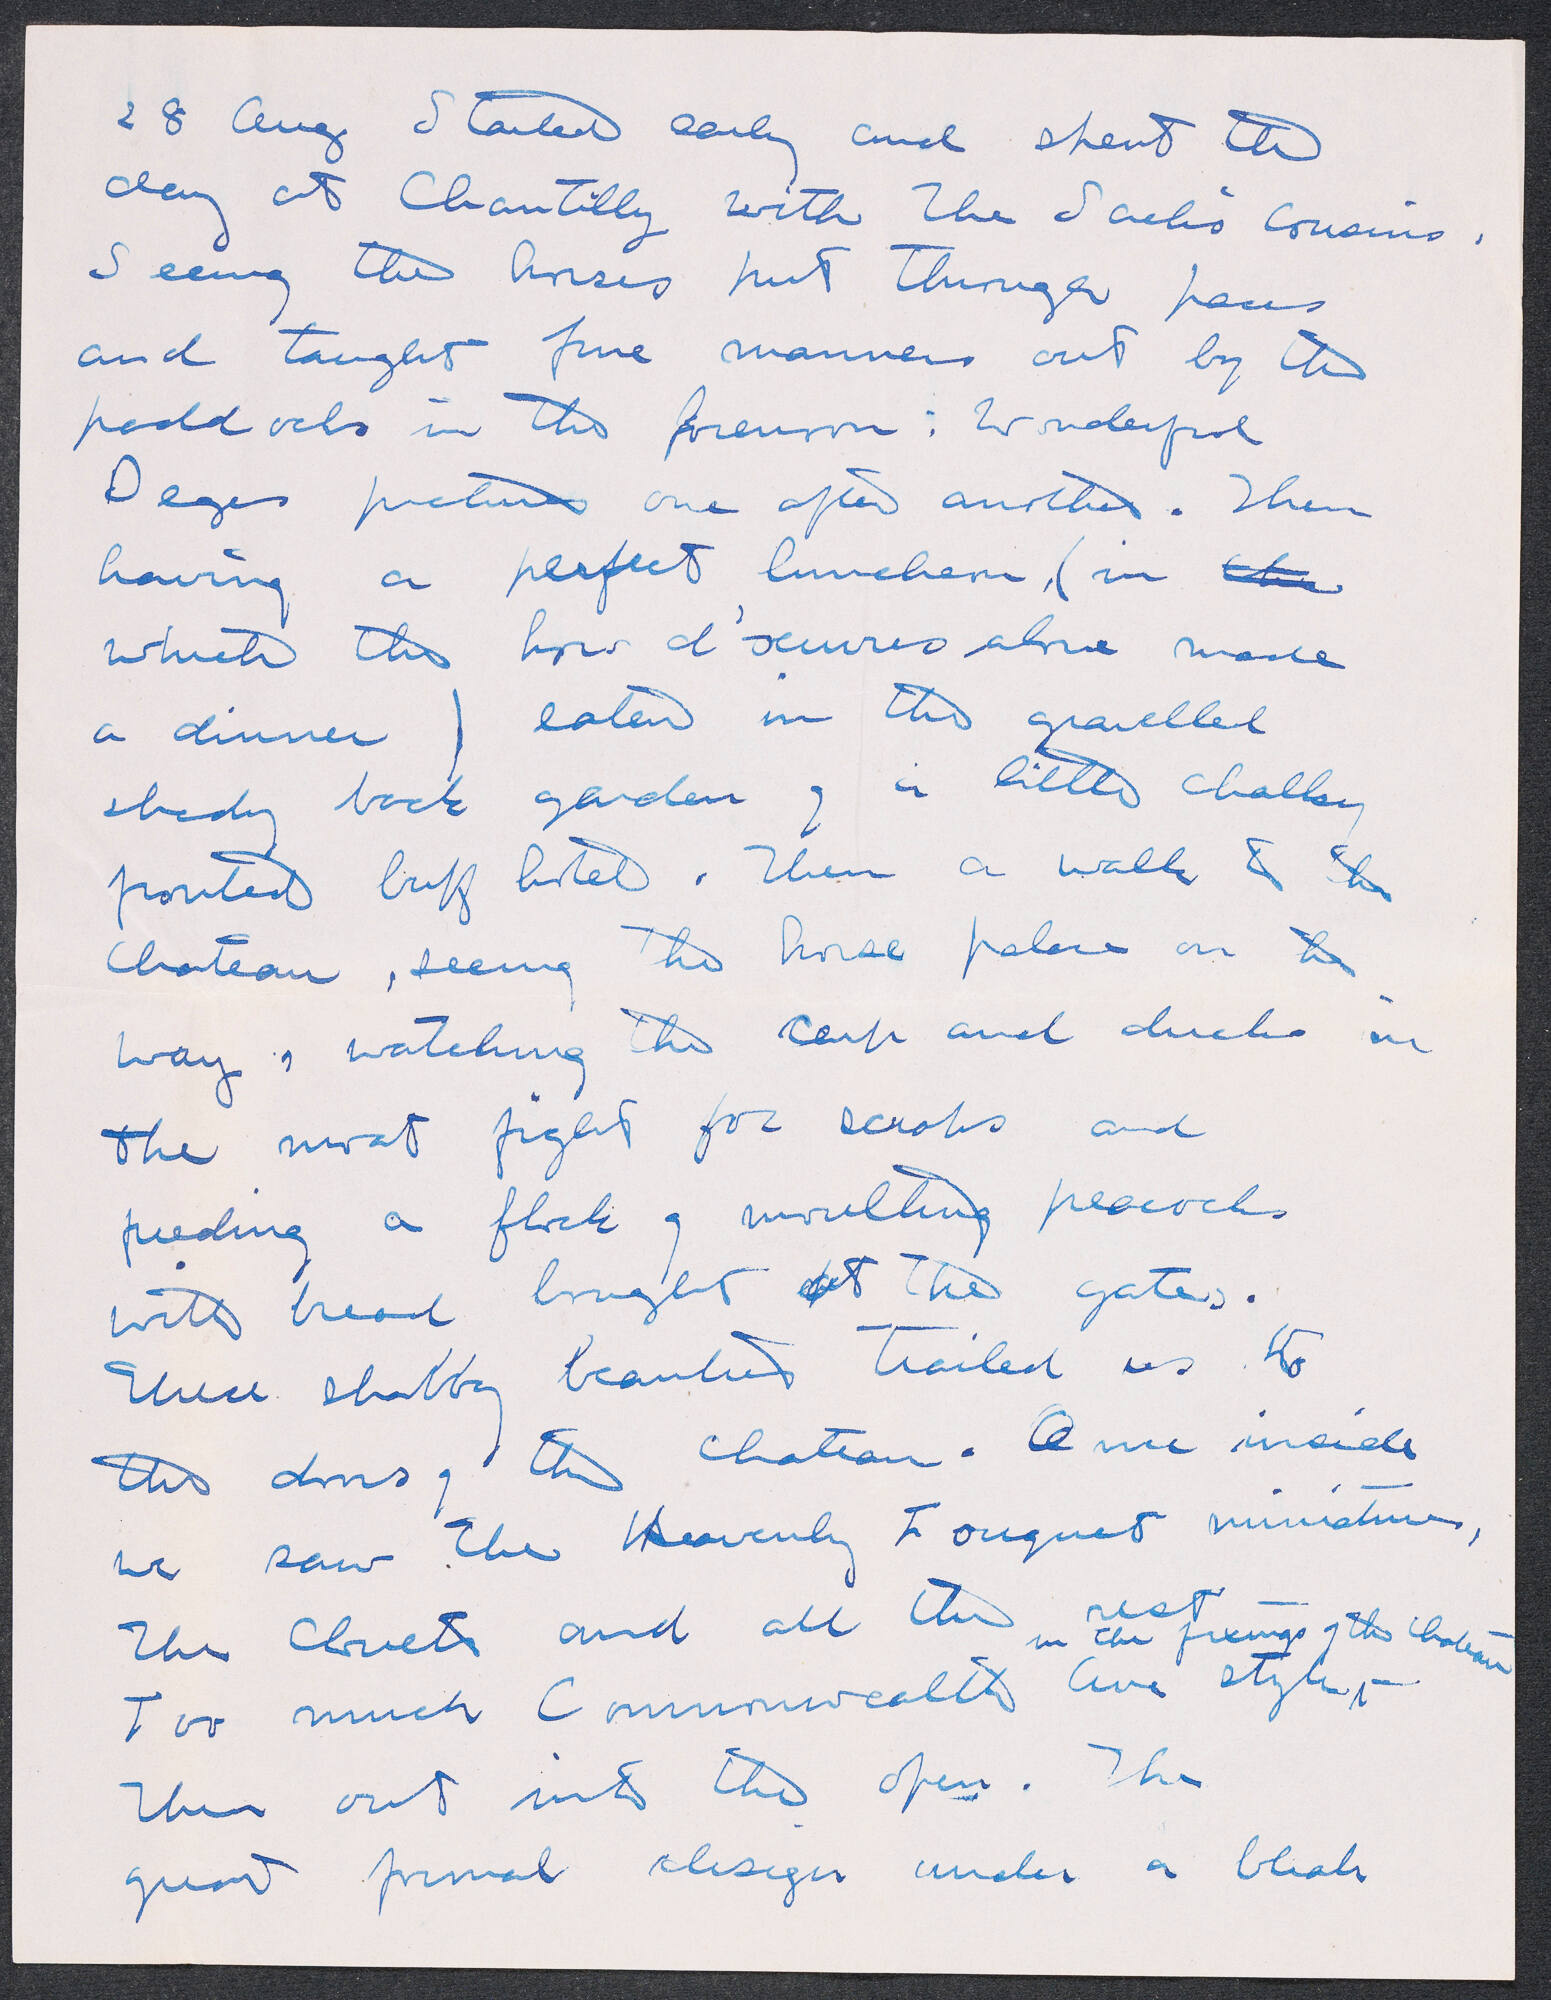 28 Aug Started early and spent the
day at Chantilly with the Sachs cousins.
Seeing the horses put through paces
and taught fine manners out by the
paddocks in the forenoon: Wonderful
Degas pictures one after another. Then
having a perfect luncheon, (in the
which the hors d'oeuvres alone made
a dinner) eaten in the gravelled
shady back garden of a little chalky
fronted buff hotel. Then a walk to the
Chateau, seeing the horse palace on the
way, watching the carp and ducks in
the moat fight for scraps and
feeding a flock of moulting peacocks
with bread bought at the gates.
These shabby beauties trailed us to
the doors of the Chateau. Once inside
we saw the Heavenly Fouquet miniatures,
The Clouets and all the rest
in the fixings of the Chateau
Too much Commonwealth Ave style,
Then out into the open. The
great formal design under a bleak